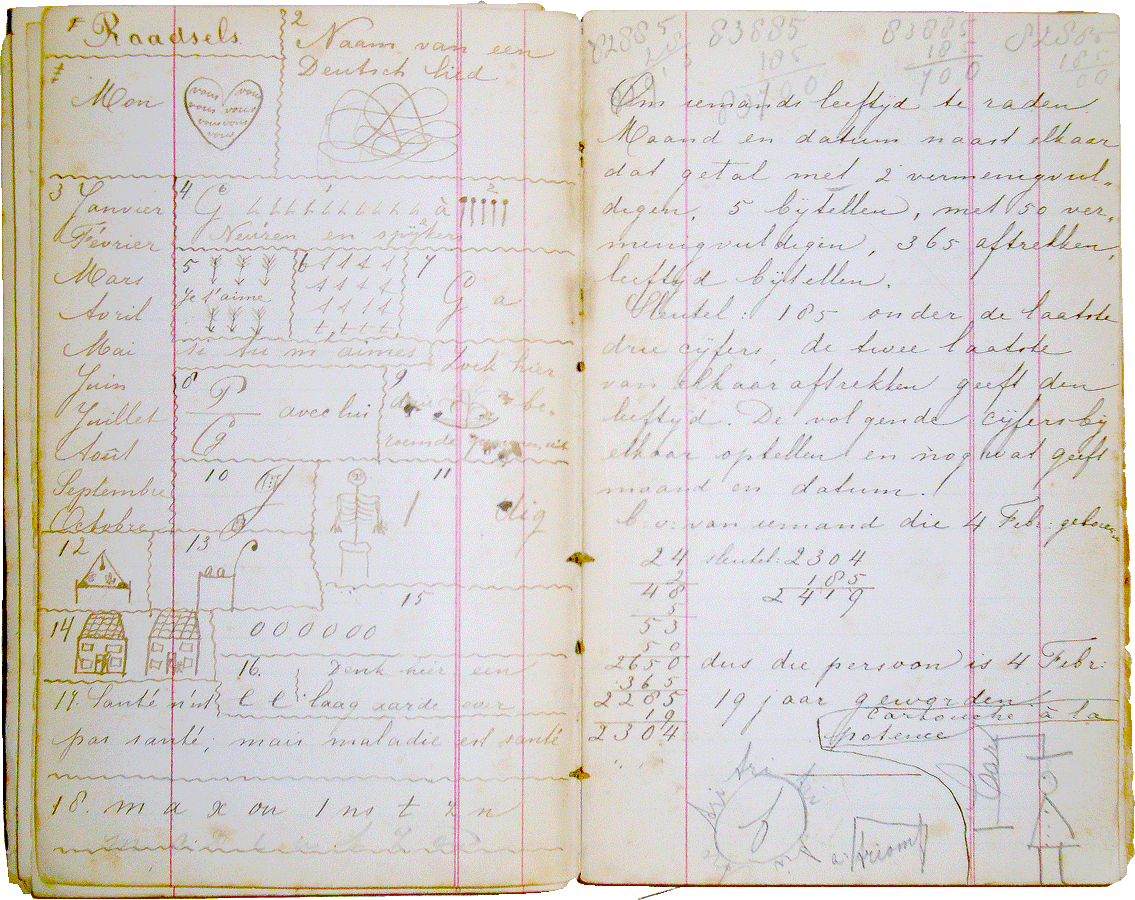 1 Raadsels.
2 Naam van een
Deutsch lied
Mon
vous vous
vous vous
vous vous
vous
3 Janvier
Février
Mars
Avril
Mai
Juin
Juillet
Août
Septembre
Octobre
4 G h h h h h h h h h h à
Neuzen en spijkers
5
Je t'aime
si tu m'aimes
6
7
G a
Zoek hier
8 P avec lui
G
9 drie be-
roemde
10
11
1 dig
12
13
aa
14
15
0 0 0 0 0 0
16. Denk hier een
l l laag aarde over
17. Santé n'est
pas santé, mais maladie est santé
18. m a x on 1 ns t z n
82885
83885
185
83700
83885
185
700
82885
185
00
Om iemands leeftijd te raden
Maand en datum naast elkaar
dat getal met 2 vermenigvul-
digen, 5 bijtellen, met 50 ver-
menigvuldigen, 365 aftrekken,
leeftijd bijtellen.
Sleutel: 185 onder de laatste
drie cijfers, de twee laatste
van elkaar aftrekken geeft den
leeftijd. De volgende cijfers bij
elkaar optellen en nog wat geeft
maand en datum.
b.v. van iemand die 4 Febr: geboren
24 sleutel: 2304
2 185
48 2419
5
53
50
2650 dus die persoon is 4 Febr:
365
2285 19 jaar geworden.
19
2304
Cartouche à la
potence